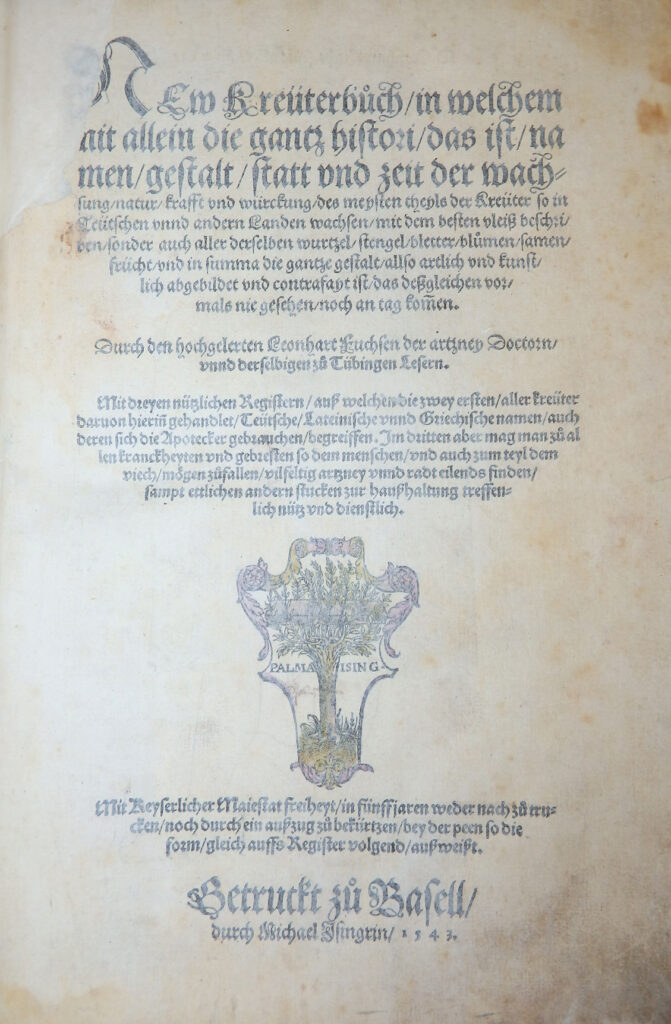 New Kreüterbůch/in welchem
nit allein die gantz histori/das ist/na
men/gestalt/statt vnd zeit der wach⸗
sung/natur/krafft vnd würckung/des meysten theyls der Kreüter so in
Teütschen vnnd andern Landen wachsen/mit dem besten vleiß beschri⸗
ben/sonder auch aller derselben wurtzel/stengel/bletter/blůmen/samen/
frücht/vnd in summa die gantze gestalt/allso artlich vnd kunst⸗
lich abgebildet vnd contrafayt ist/das deßgleichen vor⸗
mals nie gesehen/noch an tag kom̃en.
Durch den hochgelerten Leonhart Fuchsen der artzney Doctorn/
vnnd derselbigen zů Tübingen Lesern.
Mit dreyen nützlichen Registern/auß welchen die zwey ersten/aller kreüter
daruon hieriñ gehandlet/Teütsche/Lateinische vnnd Griechische namen/auch
deren sich die Apotecker gebrauchen/begreiffen. Im dritten aber mag man zů al
len kranckheyten vnd gebresten so dem menschen/vnd auch zum teyl dem
viech/mögen zůfallen/vilfeltig artzney vnnd radt eilends finden/
sampt ettlichen andern stucken zur haußhaltung treffen⸗
lich nütz vnd dienstlich.
PALMA ISING⸗
Mit Keyserlicher Maiestat freiheyt/in fünff jaren weder nach zů tru⸗
cken/noch durch ein außzug zů bekürtzen/bey der peen so die
form/gleich auffs Register volgend/außweißt.
Getruckt zů Basell/
durch Michael Isingrin/1543.